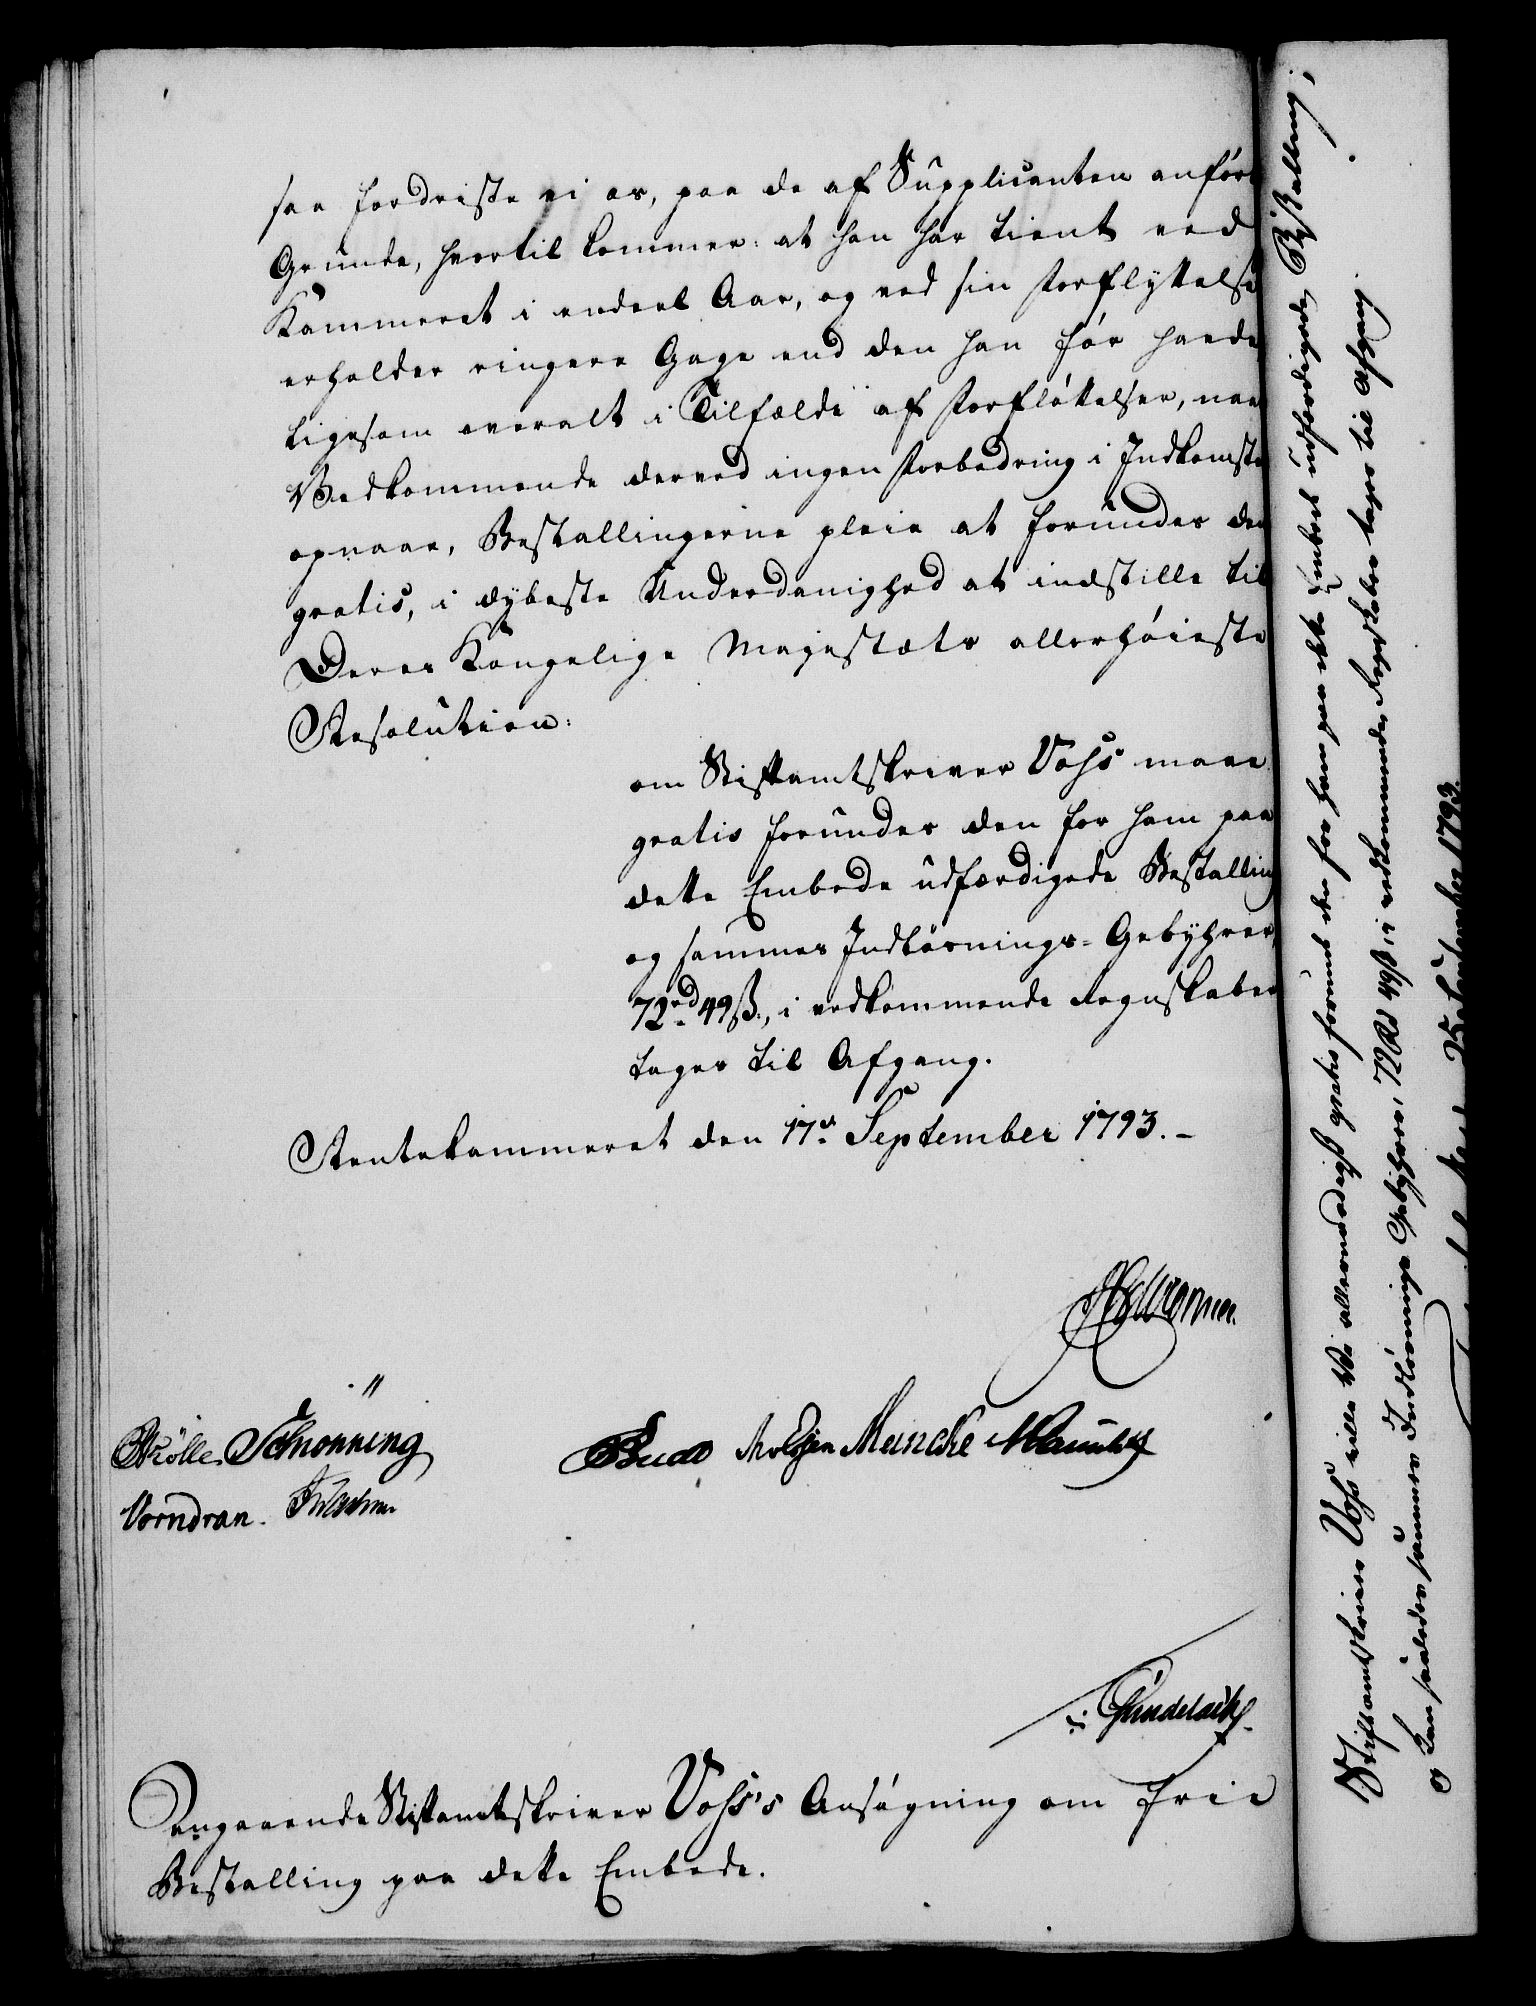 saa fordriste vi os, paa de af Supplicanten anført
Grunde, hvortil kommer: at han har tient ved
Kammeret i endeel Aar, og ved sin Forflyttelse
erholder ringere Gage end den han før havde
ligesom overalt i Tilfælde af Forfløttelser, naar
Vedkommende derved ingen Forbedring i Indkomste
opnaae, Bestallingerne pleie at forundes dem
gratis, i dybeste Underdanighed at indstille til
Deres Kongelige Majestæts allerhøieste
Resolution:
om Stiftamtskriver Vohs maae
gratis forundes den for ham paa
dette Embede udfærdigede Bestalling
og sammes Indløsnings-Gebyhrer,
72rd 49ß, i vedkommende Regnskaber
tages til Afgang.
Rentekammeret den 17d. September 1793.
Schønning
Meincke
Vorndran.
Gundelach
Angaaende Stiftamtskriver Vohs's Ansøgning om frie
Bestalling paa dette Embede.
Stiftamtskriver Vohs ville Vi allernaadigst gratis forunt den for ham paa dette Embede udfærdigede Bestalling;
og kan saaledes sammes Indløsnings Gebyhrer, 72 Rd 49ß, i vedkommende Regnskaber tages til Afgang.
25 September 1793.